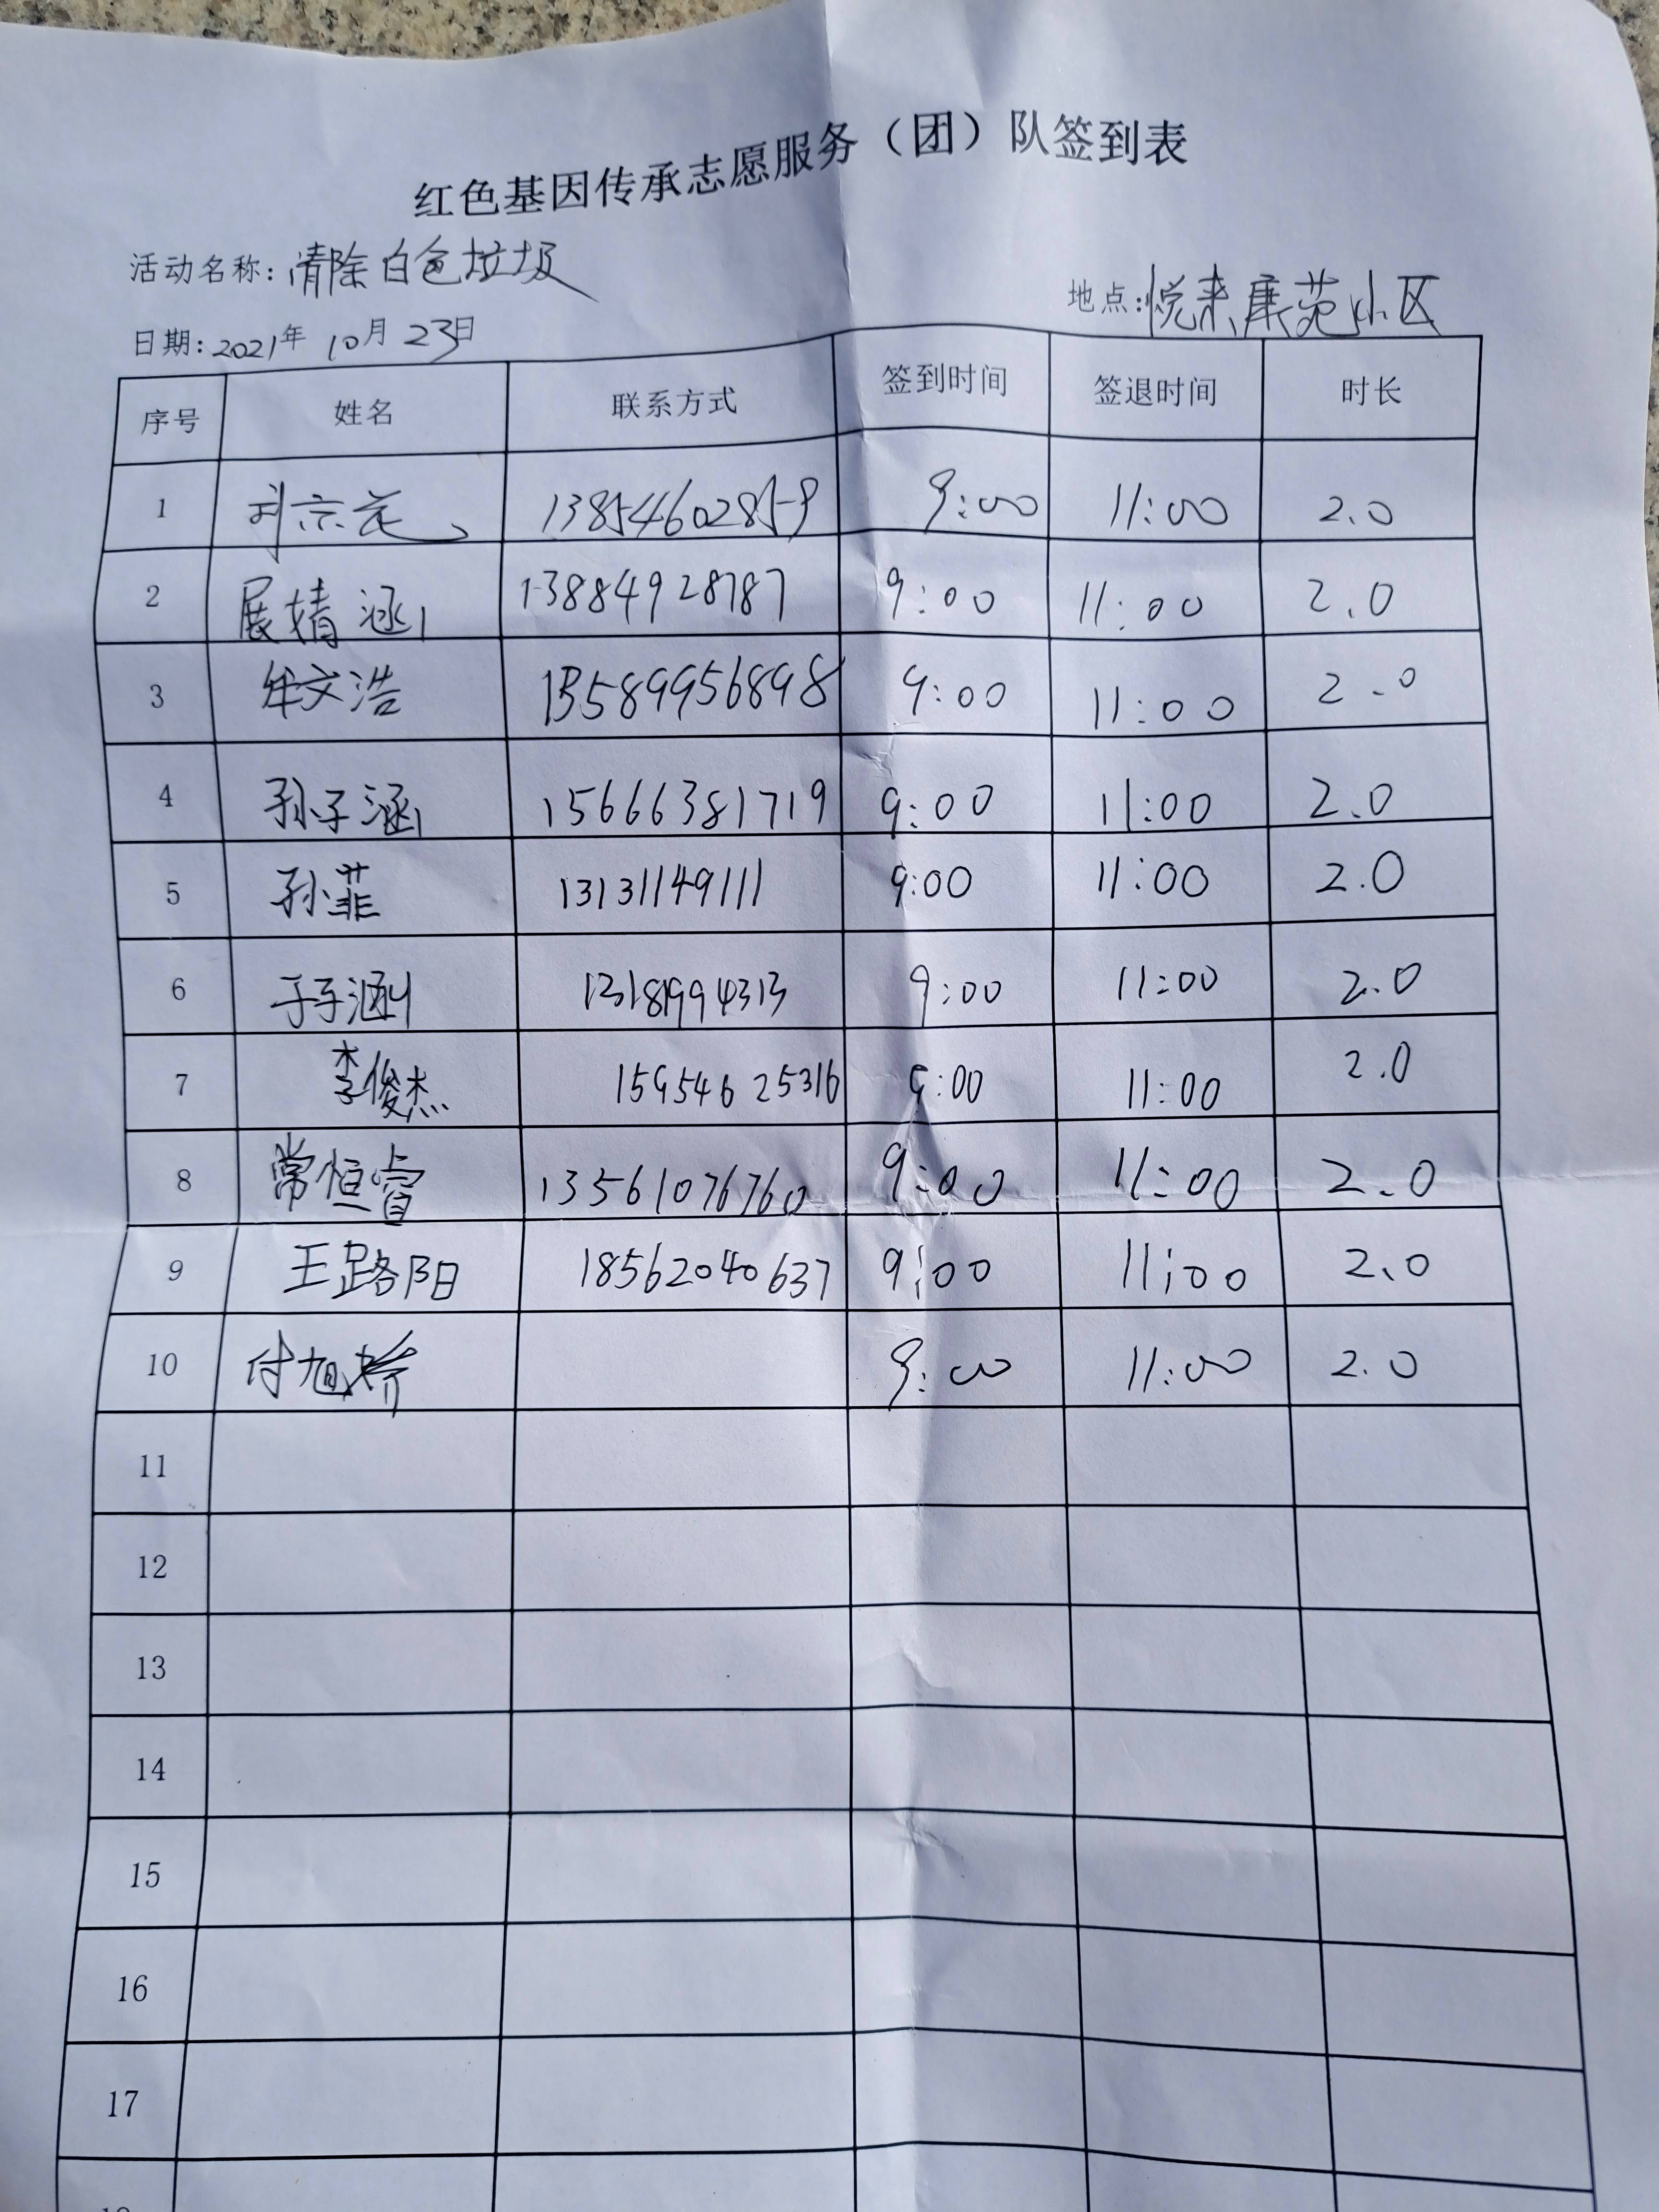 红色基因传承志愿服务（团）队签到表
活动名称：清除白色垃圾
地点：悦来康苑小区
日期：2021年 10月 23日
序号 姓名 联系方式 签到时间 签退时间 时长
1 13854602859 9:00 11:00 2.0
2 展婧涵 13884928787 9:00 11:00 2.0
3 牟文浩 13589956898 9:00 11:00 2.0
4 孙子涵 15666381719 9:00 11:00 2.0
5 孙菲 13131149111 9:00 11:00 2.0
6 于子涵 13181994313 9:00 11:00 2.0
7 李俊杰 15954625316 9:00 11:00 2.0
8 常恒睿 13561076760 9:00 11:00 2.0
9 王路阳 18562040637 9:00 11:00 2.0
10 付旭娇 9:00 11:00 2.0
11
12
13
14
15
16
17